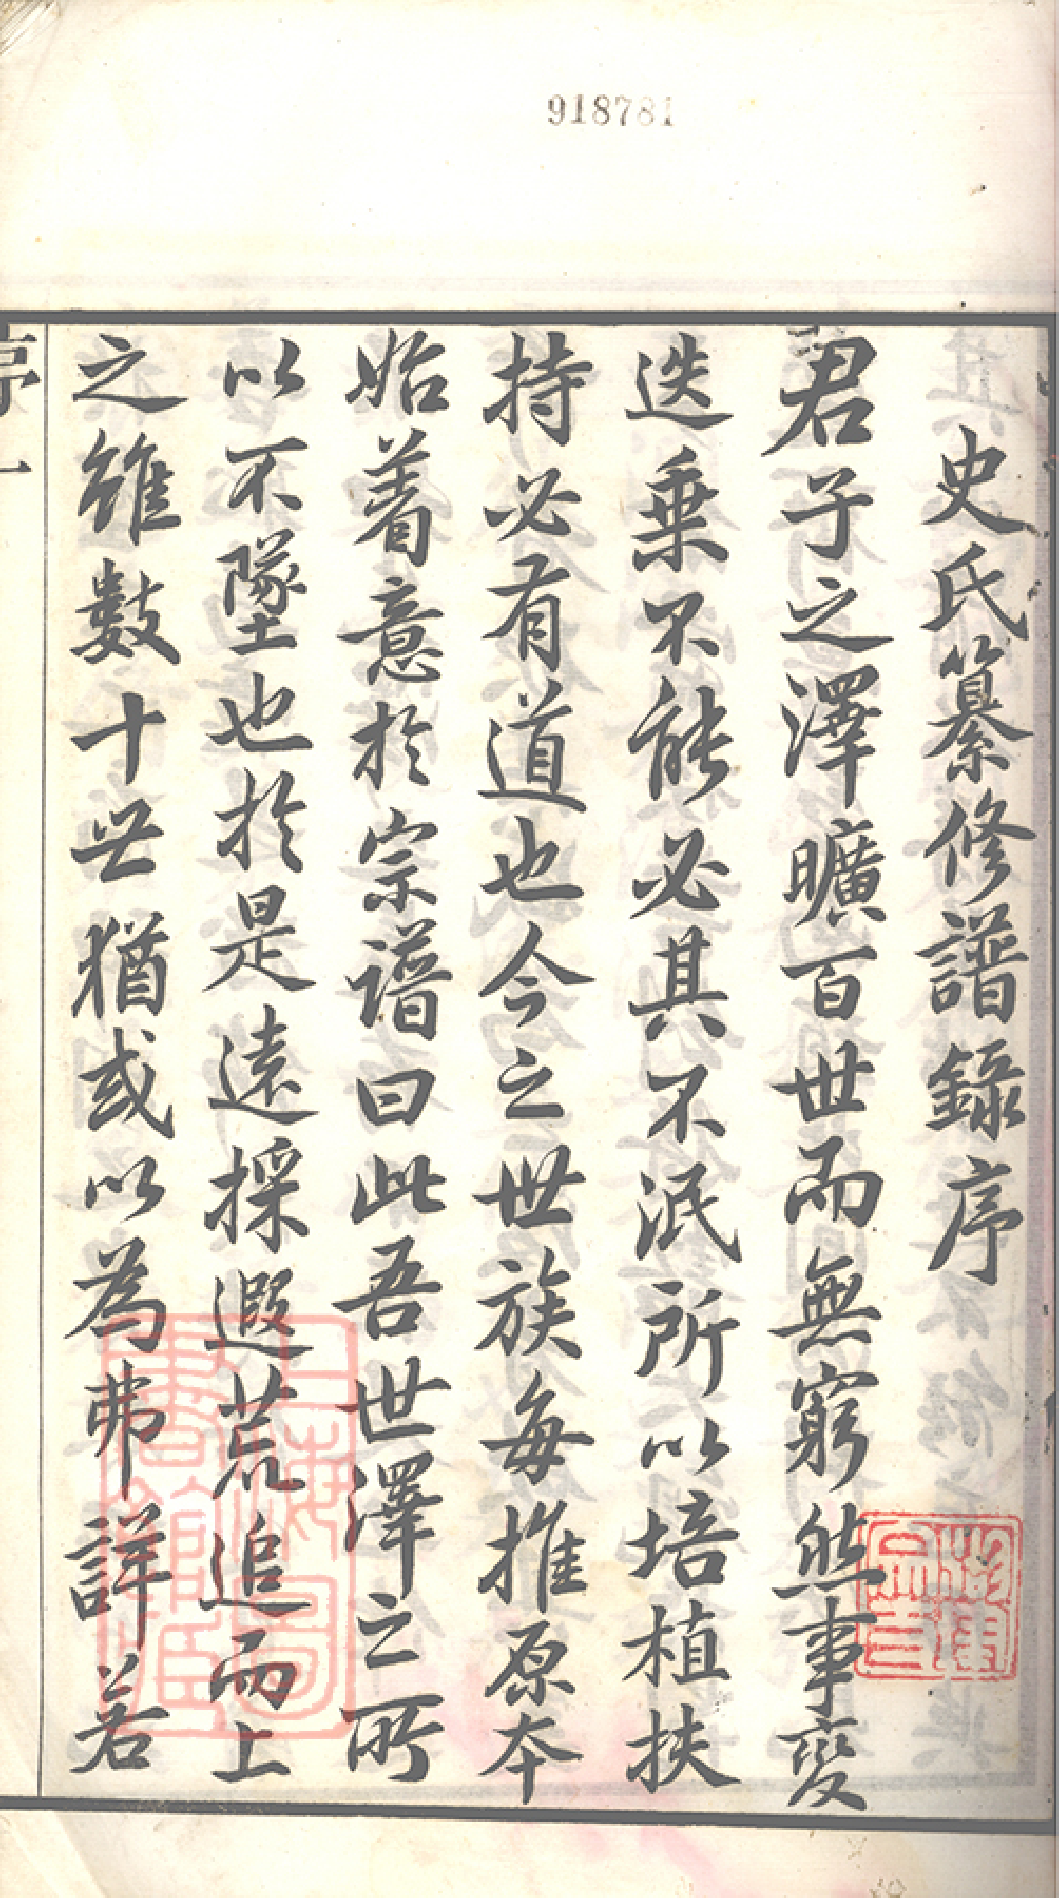 918781
史氏纂修譜錄序
君子之澤曠百世而無窮然事變
迭乗不能必其不泯所以培植扶
持必有道也今之世族每推原本
始着意於宗譜曰此吾世澤之所
以不墜也於是遠採遐荒追而上
之雖數十世猶或以為弗詳若
序一
上海圖
書館臧